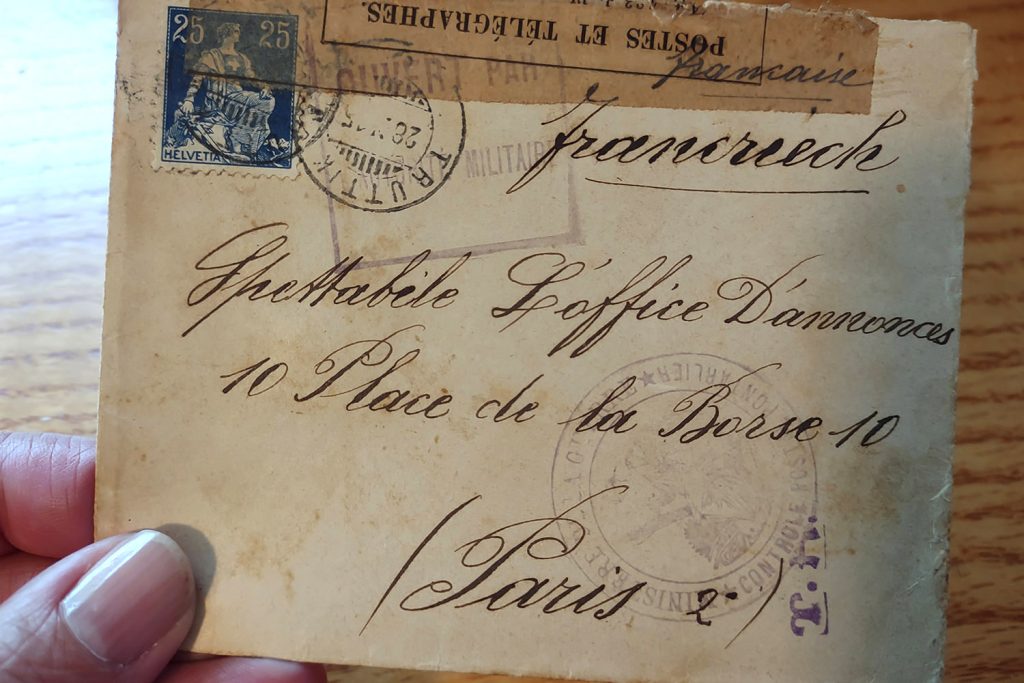 25 25
HELVETIA
POSTES ET TÉLÉGRAPHES.
française
OUVERT PAR
MILITAIRE
francriech
TRUTTIK
Spettabile L'office D'annonces
10 Place de la Borse 10
(Paris 2)
CONTROLE POSTAL PONTARLIER